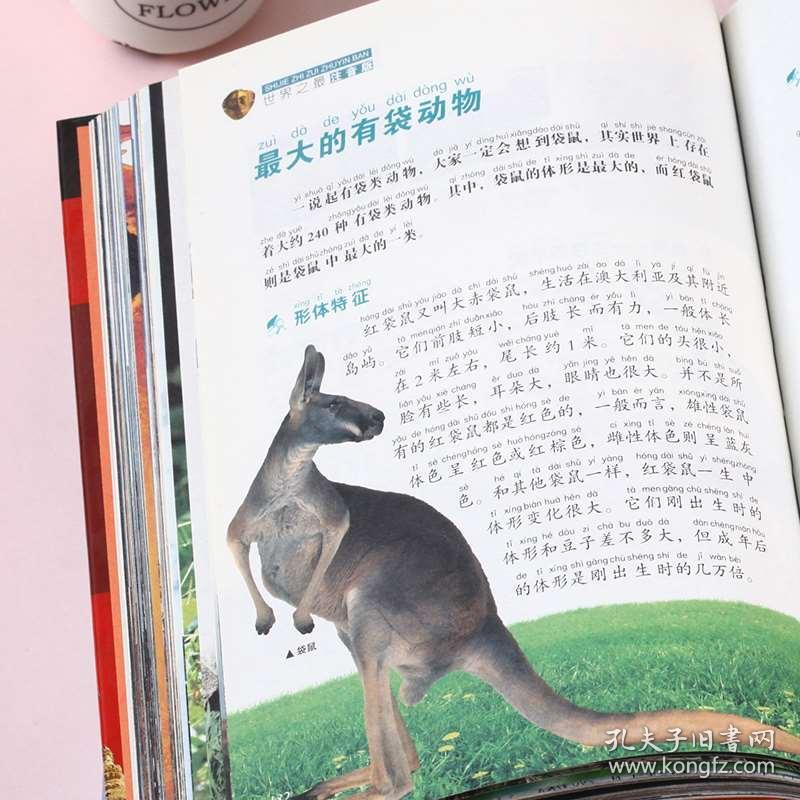 FLOW
SHIJIE ZHI ZUI ZHUYIN BAN
世界之最 注音版
zuì dà de yǒu dài dòng wù
最大的有袋动物
yì shuō qǐ yǒu dài lèi dòng wù dà jiā yí dìng huì xiǎng dào dài shǔ qí shí shì jiè shang cún zài
一说起有袋类动物，大家一定会想到袋鼠，其实世界上存在
zhe dà yuē zhǒng yǒu dài lèi dòng wù qí zhōng dài shǔ de tǐ xíng shì zuì dà de ér hóng dài shǔ
着大约 240 种有袋类动物。其中，袋鼠的体形是最大的，而红袋鼠
zé shì dài shǔ zhōng zuì dà de yí lèi
则是袋鼠中最大的一类。
xíng tǐ tè zhēng
形体特征
hóng dài shǔ yòu jiào dà chì dài shǔ shēng huó zài ào dà lì yà jí qí fù jìn
红袋鼠又叫大赤袋鼠，生活在澳大利亚及其附近
dǎo yǔ tā men qián zhī duǎn xiǎo hòu zhī cháng ér yǒu lì yì bān tǐ cháng
岛屿。它们前肢短小，后肢长而有力，一般体长
zài mǐ zuǒ yòu wěi cháng yuē mǐ tā men de tóu hěn xiǎo
在 2 米左右，尾长约 1 米。它们的头很小，
liǎn yǒu xiē cháng ěr duo dà yǎn jing yě hěn dà bìng bú shì suǒ
脸有些长，耳朵大，眼睛也很大。并不是所
yǒu de hóng dài shǔ dōu shì hóng sè de yì bān ér yán xióng xìng dài shǔ
有的红袋鼠都是红色的，一般而言，雄性袋鼠
tǐ sè chéng hóng sè huò hóng zōng sè cí xìng tǐ sè zé chéng lán huī
体色呈红色或红棕色，雌性体色则呈蓝灰
sè hé qí tā dài shǔ yí yàng hóng dài shǔ yì shēng zhōng
色。和其他袋鼠一样，红袋鼠一生中
tǐ xíng biàn huà hěn dà tā men gāng chū shēng shí de
体形变化很大。它们刚出生时的
tǐ xíng hé dòu zi chà bu duō dà dàn chéng nián hòu
体形和豆子差不多大，但成年后
de tǐ xíng shì gāng chū shēng shí de jǐ wàn bèi
的体形是刚出生时的几万倍。
▲袋鼠
孔夫子旧书网
www.kongfz.com